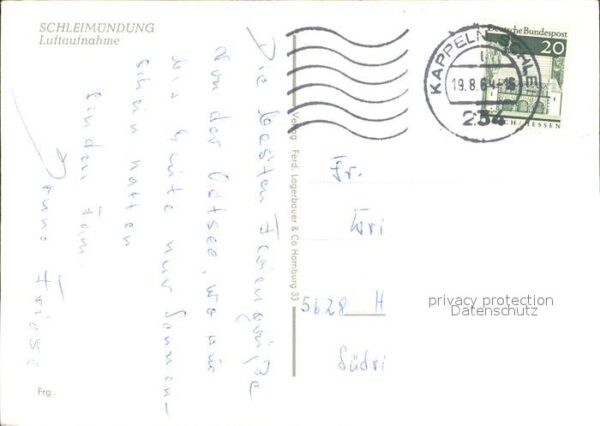 SCHLEIMÜNDUNG
Luftaufnahme
Die besten Feriengrüße
von der Ostsee, wo wir
bis heute nur Sonnen-
schein hatten
senden Fam.
Frg.
Verlag Ferd. Lagerbauer & Co Hamburg 33
KAPPELN, SCHLEI
19.8.64-16
234
Deutsche Bundespost
20
Fr.
Wri
5628 H
Südri
privacy protection
Datenschutz